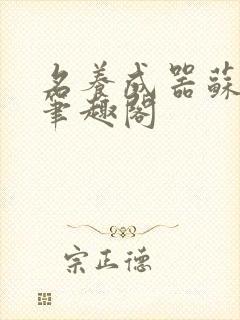 名養成器蘇
筆趣閣
宗正德